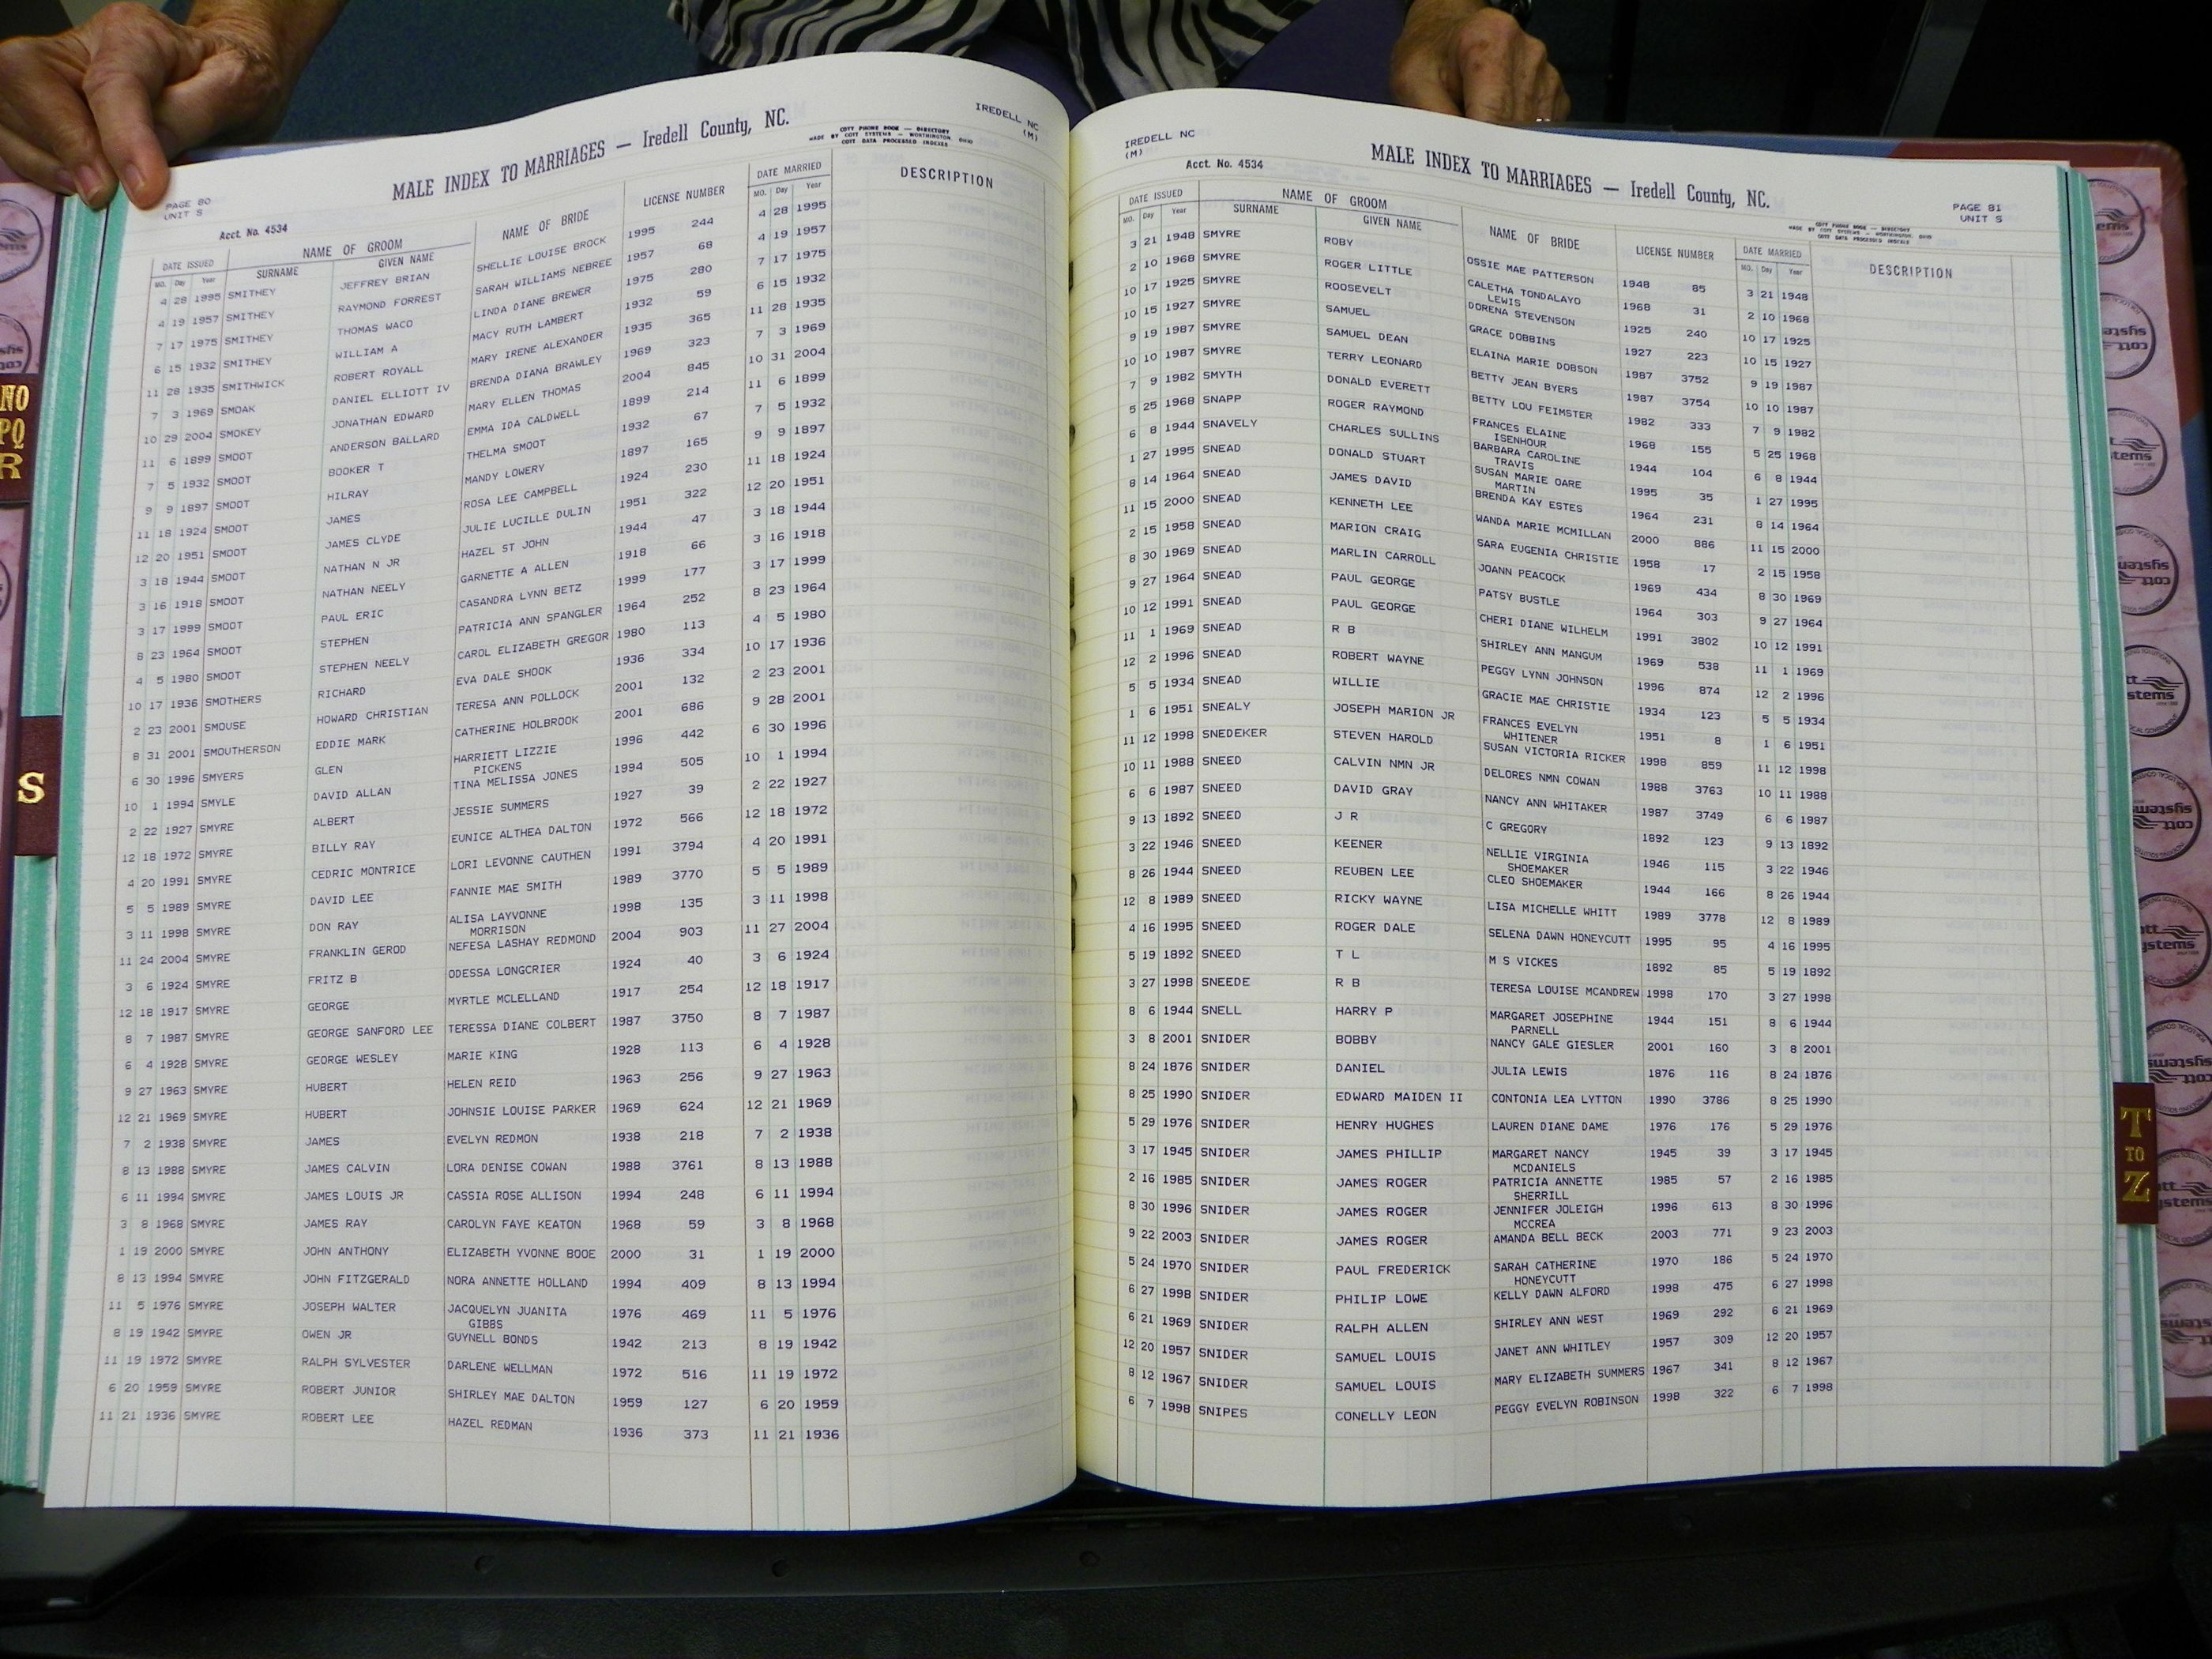 PAGE 80
UNIT S
MALE INDEX TO MARRIAGES — Iredell County, NC.
IREDELL NC
(M)
COTT PHONE BOOK — DIRECTORY
MADE BY COTT SYSTEMS — WORTHINGTON, OHIO
COTT DATA PROCESSED INDEXES
Acct. No. 4534
DATE ISSUED NAME OF GROOM NAME OF BRIDE LICENSE NUMBER DATE MARRIED DESCRIPTION
MO. Day Year SURNAME GIVEN NAME MO. Day Year
4 28 1995 SMITHEY JEFFREY BRIAN SHELLIE LOUISE BROCK 1995 244 4 28 1995
4 19 1957 SMITHEY RAYMOND FORREST SARAH WILLIAMS NEBREE 1957 68 4 19 1957
7 17 1975 SMITHEY THOMAS WACO LINDA DIANE BREWER 1975 280 7 17 1975
6 15 1932 SMITHEY WILLIAM A MACY RUTH LAMBERT 1932 59 6 15 1932
11 28 1935 SMITHWICK ROBERT ROYALL MARY IRENE ALEXANDER 1935 365 11 28 1935
7 3 1969 SMOAK DANIEL ELLIOTT IV BRENDA DIANA BRAWLEY 1969 323 7 3 1969
10 29 2004 SMOKEY JONATHAN EDWARD MARY ELLEN THOMAS 2004 845 10 31 2004
11 6 1899 SMOOT ANDERSON BALLARD EMMA IDA CALDWELL 1899 214 11 6 1899
7 5 1932 SMOOT BOOKER T THELMA SMOOT 1932 67 7 5 1932
9 9 1897 SMOOT HILRAY MANDY LOWERY 1897 165 9 9 1897
11 18 1924 SMOOT JAMES ROSA LEE CAMPBELL 1924 230 11 18 1924
12 20 1951 SMOOT JAMES CLYDE JULIE LUCILLE DULIN 1951 322 12 20 1951
3 18 1944 SMOOT NATHAN N JR HAZEL ST JOHN 1944 47 3 18 1944
3 16 1918 SMOOT NATHAN NEELY GARNETTE A ALLEN 1918 66 3 16 1918
3 17 1999 SMOOT PAUL ERIC CASANDRA LYNN BETZ 1999 177 3 17 1999
8 23 1964 SMOOT STEPHEN PATRICIA ANN SPANGLER 1964 252 8 23 1964
4 5 1980 SMOOT STEPHEN NEELY CAROL ELIZABETH GREGOR 1980 113 4 5 1980
10 17 1936 SMOTHERS RICHARD EVA DALE SHOOK 1936 334 10 17 1936
2 23 2001 SMOUSE HOWARD CHRISTIAN TERESA ANN POLLOCK 2001 132 2 23 2001
8 31 2001 SMOUTHERSON EDDIE MARK CATHERINE HOLBROOK 2001 686 9 28 2001
6 30 1996 SMYERS GLEN HARRIETT LIZZIE 1996 442 6 30 1996
PICKENS
10 1 1994 SMYLE DAVID ALLAN TINA MELISSA JONES 1994 505 10 1 1994
2 22 1927 SMYRE ALBERT JESSIE SUMMERS 1927 39 2 22 1927
12 18 1972 SMYRE BILLY RAY EUNICE ALTHEA DALTON 1972 566 12 18 1972
4 20 1991 SMYRE CEDRIC MONTRICE LORI LEVONNE CAUTHEN 1991 3794 4 20 1991
5 5 1989 SMYRE DAVID LEE FANNIE MAE SMITH 1989 3770 5 5 1989
3 11 1998 SMYRE DON RAY ALISA LAYVONNE 1998 135 3 11 1998
MORRISON
11 24 2004 SMYRE FRANKLIN GEROD NEFESA LASHAY REDMOND 2004 903 11 27 2004
3 6 1924 SMYRE FRITZ B ODESSA LONGCRIER 1924 40 3 6 1924
12 18 1917 SMYRE GEORGE MYRTLE MCLELLAND 1917 254 12 18 1917
8 7 1987 SMYRE GEORGE SANFORD LEE TERESSA DIANE COLBERT 1987 3750 8 7 1987
6 4 1928 SMYRE GEORGE WESLEY MARIE KING 1928 113 6 4 1928
9 27 1963 SMYRE HUBERT HELEN REID 1963 256 9 27 1963
12 21 1969 SMYRE HUBERT JOHNSIE LOUISE PARKER 1969 624 12 21 1969
7 2 1938 SMYRE JAMES EVELYN REDMON 1938 218 7 2 1938
8 13 1988 SMYRE JAMES CALVIN LORA DENISE COWAN 1988 3761 8 13 1988
6 11 1994 SMYRE JAMES LOUIS JR CASSIA ROSE ALLISON 1994 248 6 11 1994
3 8 1968 SMYRE JAMES RAY CAROLYN FAYE KEATON 1968 59 3 8 1968
1 19 2000 SMYRE JOHN ANTHONY ELIZABETH YVONNE BOOE 2000 31 1 19 2000
8 13 1994 SMYRE JOHN FITZGERALD NORA ANNETTE HOLLAND 1994 409 8 13 1994
11 5 1976 SMYRE JOSEPH WALTER JACQUELYN JUANITA 1976 469 11 5 1976
GIBBS
8 19 1942 SMYRE OWEN JR GUYNELL BONDS 1942 213 8 19 1942
11 19 1972 SMYRE RALPH SYLVESTER DARLENE WELLMAN 1972 516 11 19 1972
6 20 1959 SMYRE ROBERT JUNIOR SHIRLEY MAE DALTON 1959 127 6 20 1959
11 21 1936 SMYRE ROBERT LEE HAZEL REDMAN 1936 373 11 21 1936
IREDELL NC
(M)
Acct. No. 4534
MALE INDEX TO MARRIAGES — Iredell County, NC.
PAGE 81
UNIT S
COTT PHONE BOOK — DIRECTORY
MADE BY COTT SYSTEMS — WORTHINGTON, OHIO
COTT DATA PROCESSED INDEXES
DATE ISSUED NAME OF GROOM NAME OF BRIDE LICENSE NUMBER DATE MARRIED DESCRIPTION
MO. Day Year SURNAME GIVEN NAME MO. Day Year
3 21 1948 SMYRE ROBY OSSIE MAE PATTERSON 1948 85 3 21 1948
2 10 1968 SMYRE ROGER LITTLE CALETHA TONDALAYO 1968 31 2 10 1968
LEWIS
10 17 1925 SMYRE ROOSEVELT DORENA STEVENSON 1925 240 10 17 1925
10 15 1927 SMYRE SAMUEL GRACE DOBBINS 1927 223 10 15 1927
9 19 1987 SMYRE SAMUEL DEAN ELAINA MARIE DOBSON 1987 3752 9 19 1987
10 10 1987 SMYRE TERRY LEONARD BETTY JEAN BYERS 1987 3754 10 10 1987
7 9 1982 SMYTH DONALD EVERETT BETTY LOU FEIMSTER 1982 333 7 9 1982
5 25 1968 SNAPP ROGER RAYMOND FRANCES ELAINE 1968 155 5 25 1968
ISENHOUR
6 8 1944 SNAVELY CHARLES SULLINS BARBARA CAROLINE 1944 104 6 8 1944
TRAVIS
1 27 1995 SNEAD DONALD STUART SUSAN MARIE OARE 1995 35 1 27 1995
MARTIN
8 14 1964 SNEAD JAMES DAVID BRENDA KAY ESTES 1964 231 8 14 1964
11 15 2000 SNEAD KENNETH LEE WANDA MARIE MCMILLAN 2000 886 11 15 2000
2 15 1958 SNEAD MARION CRAIG SARA EUGENIA CHRISTIE 1958 17 2 15 1958
8 30 1969 SNEAD MARLIN CARROLL JOANN PEACOCK 1969 434 8 30 1969
9 27 1964 SNEAD PAUL GEORGE PATSY BUSTLE 1964 303 9 27 1964
10 12 1991 SNEAD PAUL GEORGE CHERI DIANE WILHELM 1991 3802 10 12 1991
11 1 1969 SNEAD R B SHIRLEY ANN MANGUM 1969 538 11 1 1969
12 2 1996 SNEAD ROBERT WAYNE PEGGY LYNN JOHNSON 1996 874 12 2 1996
5 5 1934 SNEAD WILLIE GRACIE MAE CHRISTIE 1934 123 5 5 1934
1 6 1951 SNEALY JOSEPH MARION JR FRANCES EVELYN 1951 8 1 6 1951
WHITENER
11 12 1998 SNEDEKER STEVEN HAROLD SUSAN VICTORIA RICKER 1998 859 11 12 1998
10 11 1988 SNEED CALVIN NMN JR DELORES NMN COWAN 1988 3763 10 11 1988
6 6 1987 SNEED DAVID GRAY NANCY ANN WHITAKER 1987 3749 6 6 1987
9 13 1892 SNEED J R C GREGORY 1892 123 9 13 1892
3 22 1946 SNEED KEENER NELLIE VIRGINIA 1946 115 3 22 1946
SHOEMAKER
8 26 1944 SNEED REUBEN LEE CLEO SHOEMAKER 1944 166 8 26 1944
12 8 1989 SNEED RICKY WAYNE LISA MICHELLE WHITT 1989 3778 12 8 1989
4 16 1995 SNEED ROGER DALE SELENA DAWN HONEYCUTT 1995 95 4 16 1995
5 19 1892 SNEED T L M S VICKES 1892 85 5 19 1892
3 27 1998 SNEEDE R B TERESA LOUISE MCANDREW 1998 170 3 27 1998
8 6 1944 SNELL HARRY P MARGARET JOSEPHINE 1944 151 8 6 1944
PARNELL
3 8 2001 SNIDER BOBBY NANCY GALE GIESLER 2001 160 3 8 2001
8 24 1876 SNIDER DANIEL JULIA LEWIS 1876 116 8 24 1876
8 25 1990 SNIDER EDWARD MAIDEN II CONTONIA LEA LYTTON 1990 3786 8 25 1990
5 29 1976 SNIDER HENRY HUGHES LAUREN DIANE DAME 1976 176 5 29 1976
3 17 1945 SNIDER JAMES PHILLIP MARGARET NANCY 1945 39 3 17 1945
MCDANIELS
2 16 1985 SNIDER JAMES ROGER PATRICIA ANNETTE 1985 57 2 16 1985
SHERRILL
8 30 1996 SNIDER JAMES ROGER JENNIFER JOLEIGH 1996 613 8 30 1996
MCCREA
9 22 2003 SNIDER JAMES ROGER AMANDA BELL BECK 2003 771 9 23 2003
5 24 1970 SNIDER PAUL FREDERICK SARAH CATHERINE 1970 186 5 24 1970
HONEYCUTT
6 27 1998 SNIDER PHILIP LOWE KELLY DAWN ALFORD 1998 475 6 27 1998
6 21 1969 SNIDER RALPH ALLEN SHIRLEY ANN WEST 1969 292 6 21 1969
12 20 1957 SNIDER SAMUEL LOUIS JANET ANN WHITLEY 1957 309 12 20 1957
8 12 1967 SNIDER SAMUEL LOUIS MARY ELIZABETH SUMMERS 1967 341 8 12 1967
6 7 1998 SNIPES CONELLY LEON PEGGY EVELYN ROBINSON 1998 322 6 7 1998
NO
PQ
R
S
T
TO
Z